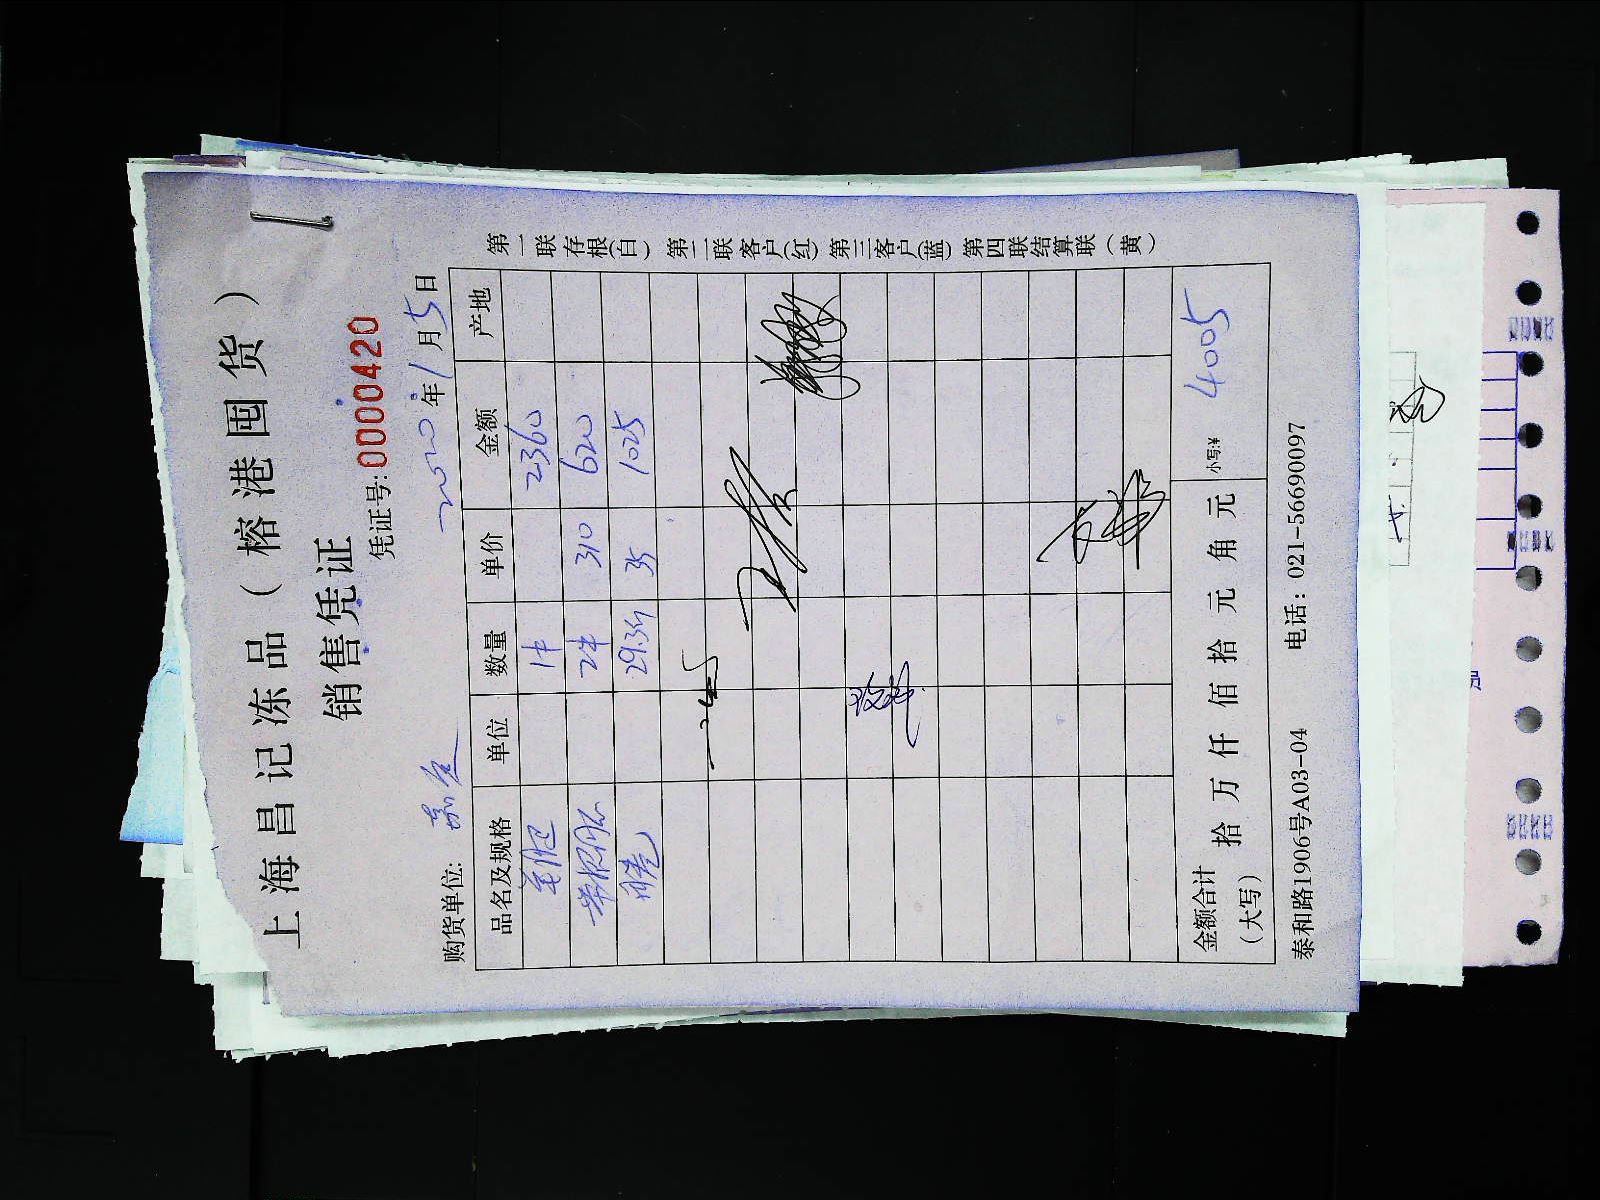 上海昌记冻品（榕港囤货）
销售凭证
凭证号:0000420
2020年1月5日
购货单位:
品名及规格 单位 数量 单价 金额 产地
1件 2360
2件 310 620
29.3斤 35 1025
金额合计（大写） 拾 万 仟 佰 拾 元 角 元 小写:¥ 4005
泰和路1906号A03-04 电话：021-56690097
第一联存根(白) 第二联客户(红) 第三客户(蓝) 第四联结算联（黄）